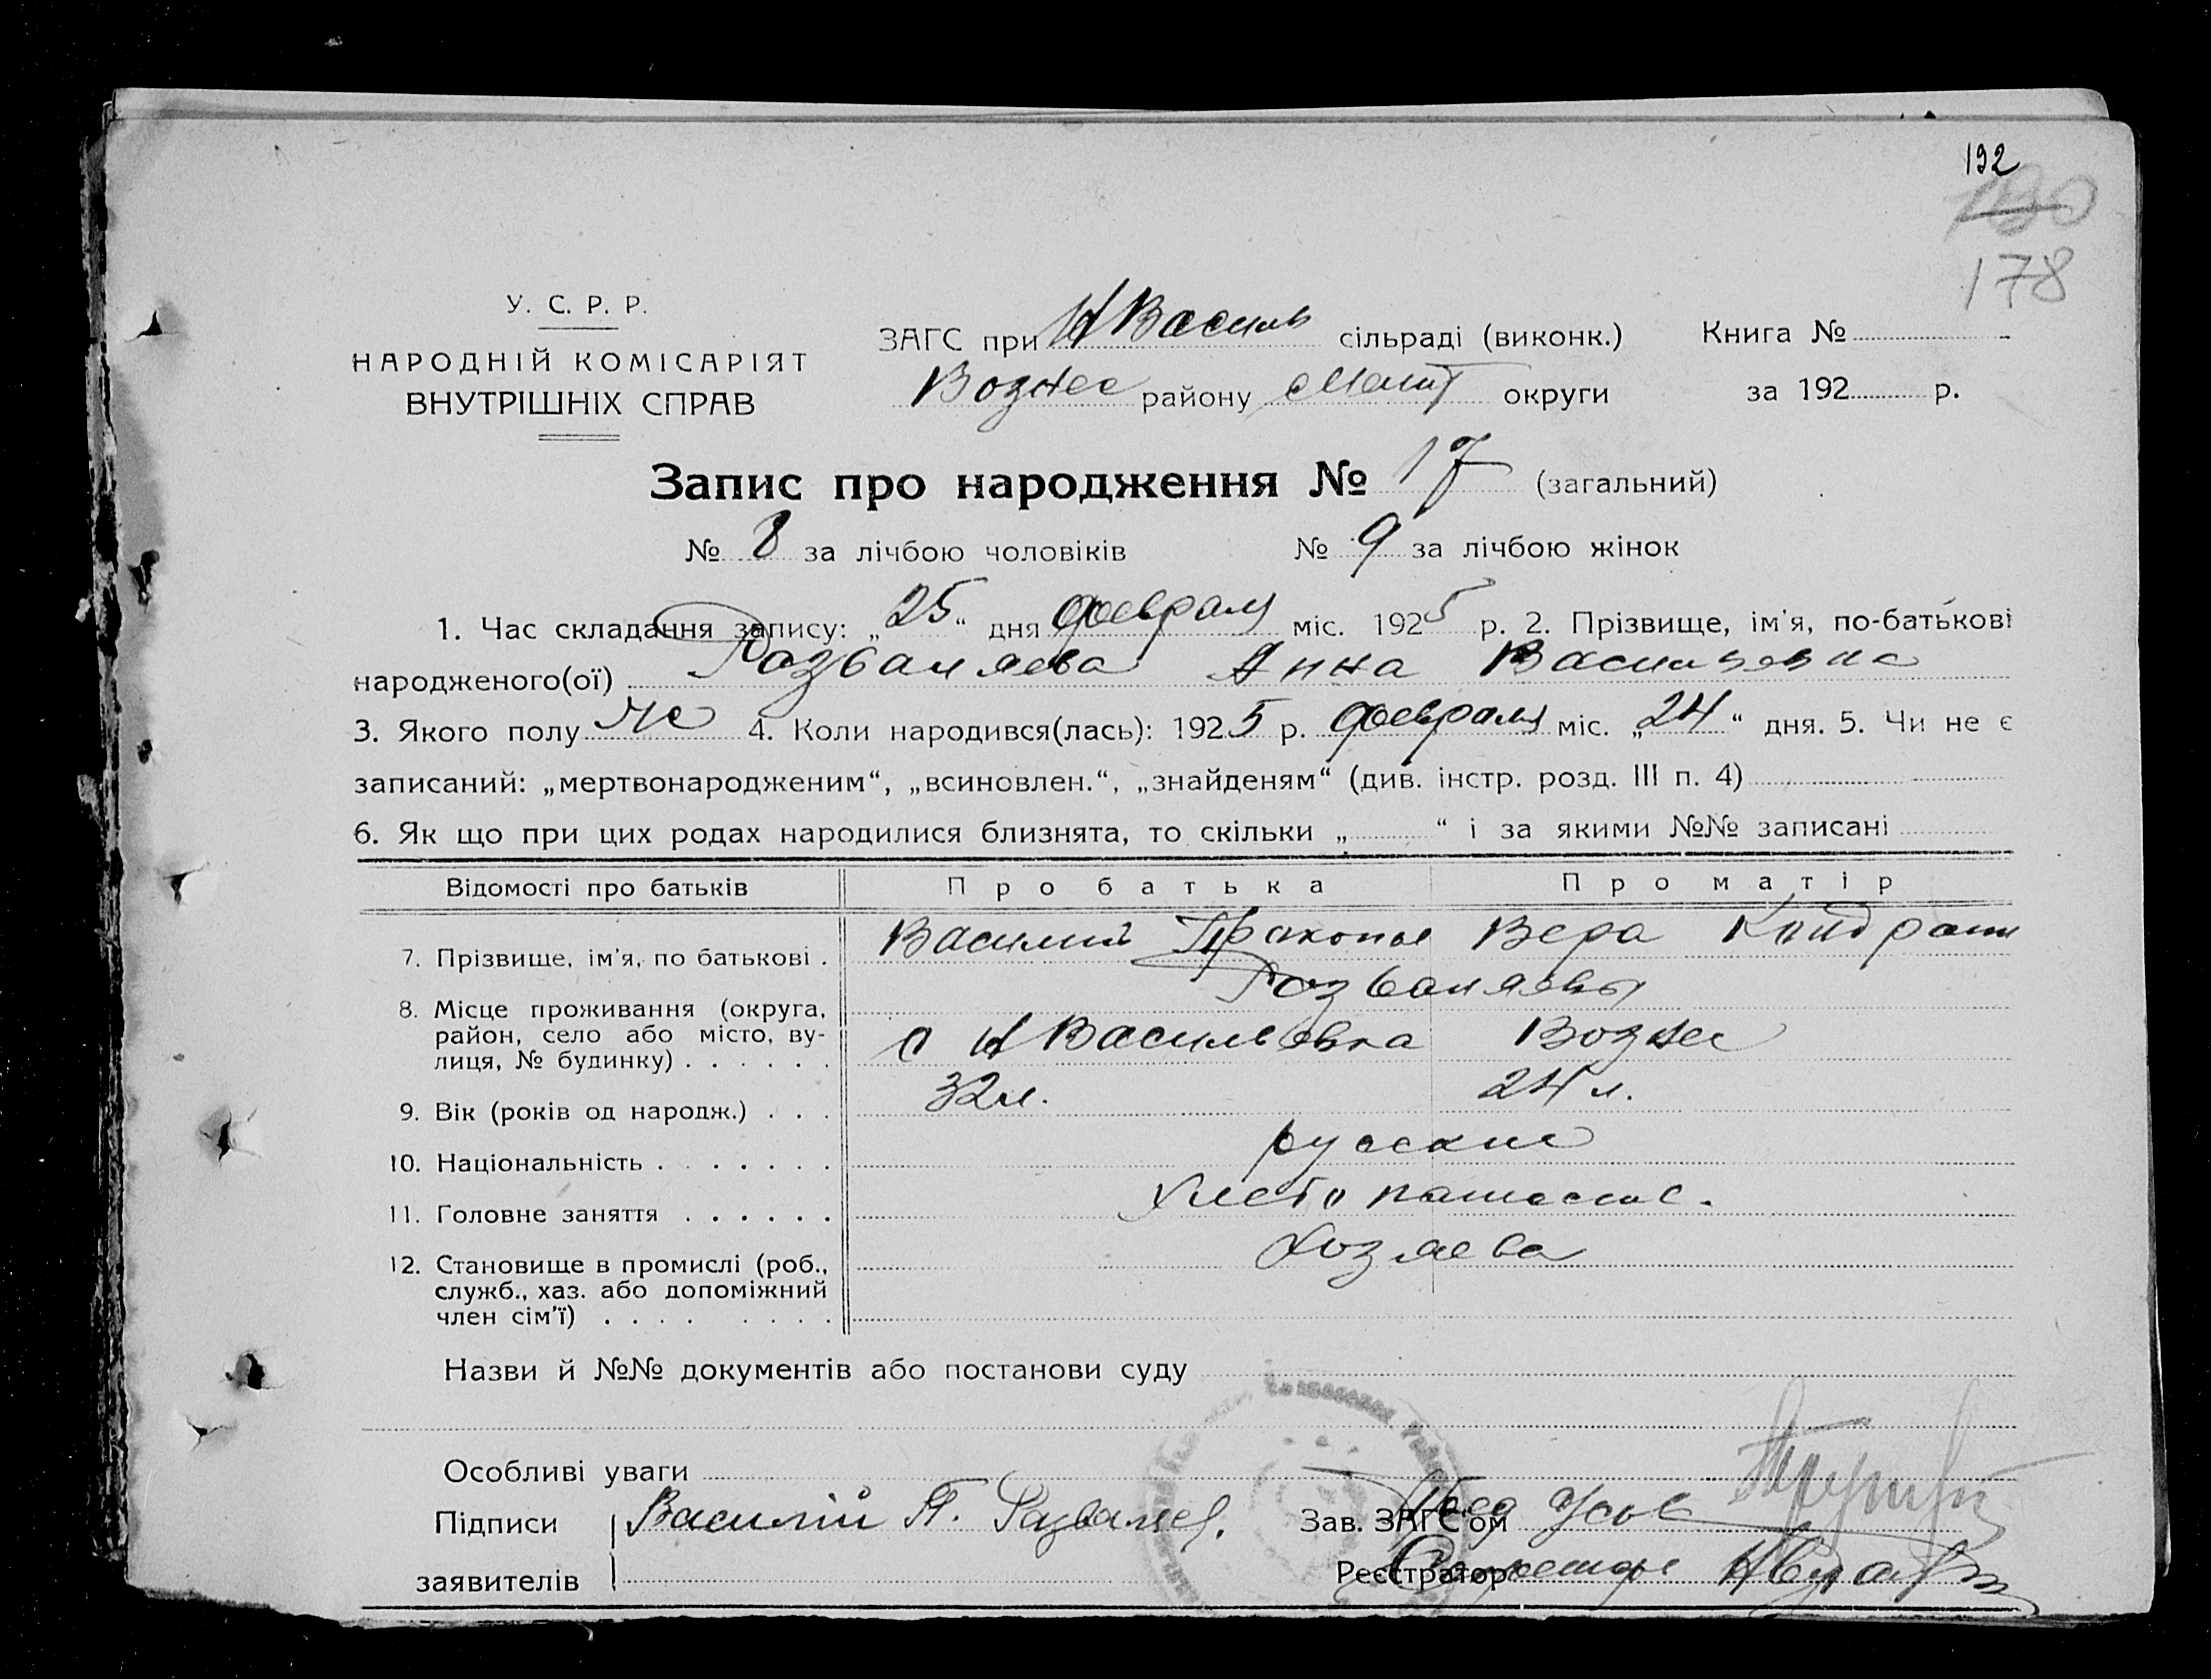 192
180
178
У. С. Р. Р.
НАРОДНІЙ КОМІСАРІЯТ
ВНУТРІШНІХ СПРАВ
ЗАГС при Н Василь сільраді (виконк.) Книга №
Вознес району Мелит округи за 192 р.
Запис про народження № 17 (загальний)
№ 8 за лічбою чоловіків № 9 за лічбою жінок
1. Час складання запису: „25“ дня февраля міс. 1925 р. 2. Прізвище, ім'я, по-батькові
народженого(ої) Разваляева Анна Васильевна
3. Якого полу же 4. Коли народився(лась): 1925 р. февраля міс. „24“ дня. 5. Чи не є
записаний: „мертвонародженим“, „всиновлен.“, „знайденям“ (див. інстр. розд. III п. 4)
6. Як що при цих родах народилися близнята, то скільки „ “ і за якими №№ записані
Відомості про батьків Про батька Про матір
7. Прізвище, ім'я, по батькові . Василий Прокопье Вера Кондрат
Разваляевы
8. Місце проживання (округа,
район, село або місто, ву-
лиця, № будинку) . . . . . . с Н Васильевка Вознес
9. Вік (років од народж.) . . . 32 л. 24 л.
10. Національність . . . . . . . русские
11. Головне заняття . . . . . . хлебопашест.
12. Становище в промислі (роб.,
служб., хаз. або допоміжний
член сім'ї) . . . . . . . . хозяева
Назви й №№ документів або постанови суду
Особливі уваги
Підписи Василій П. Разваляев.
заявителів
Зав. ЗАГС'ом Пред Усов
Реєстратор Секретарь